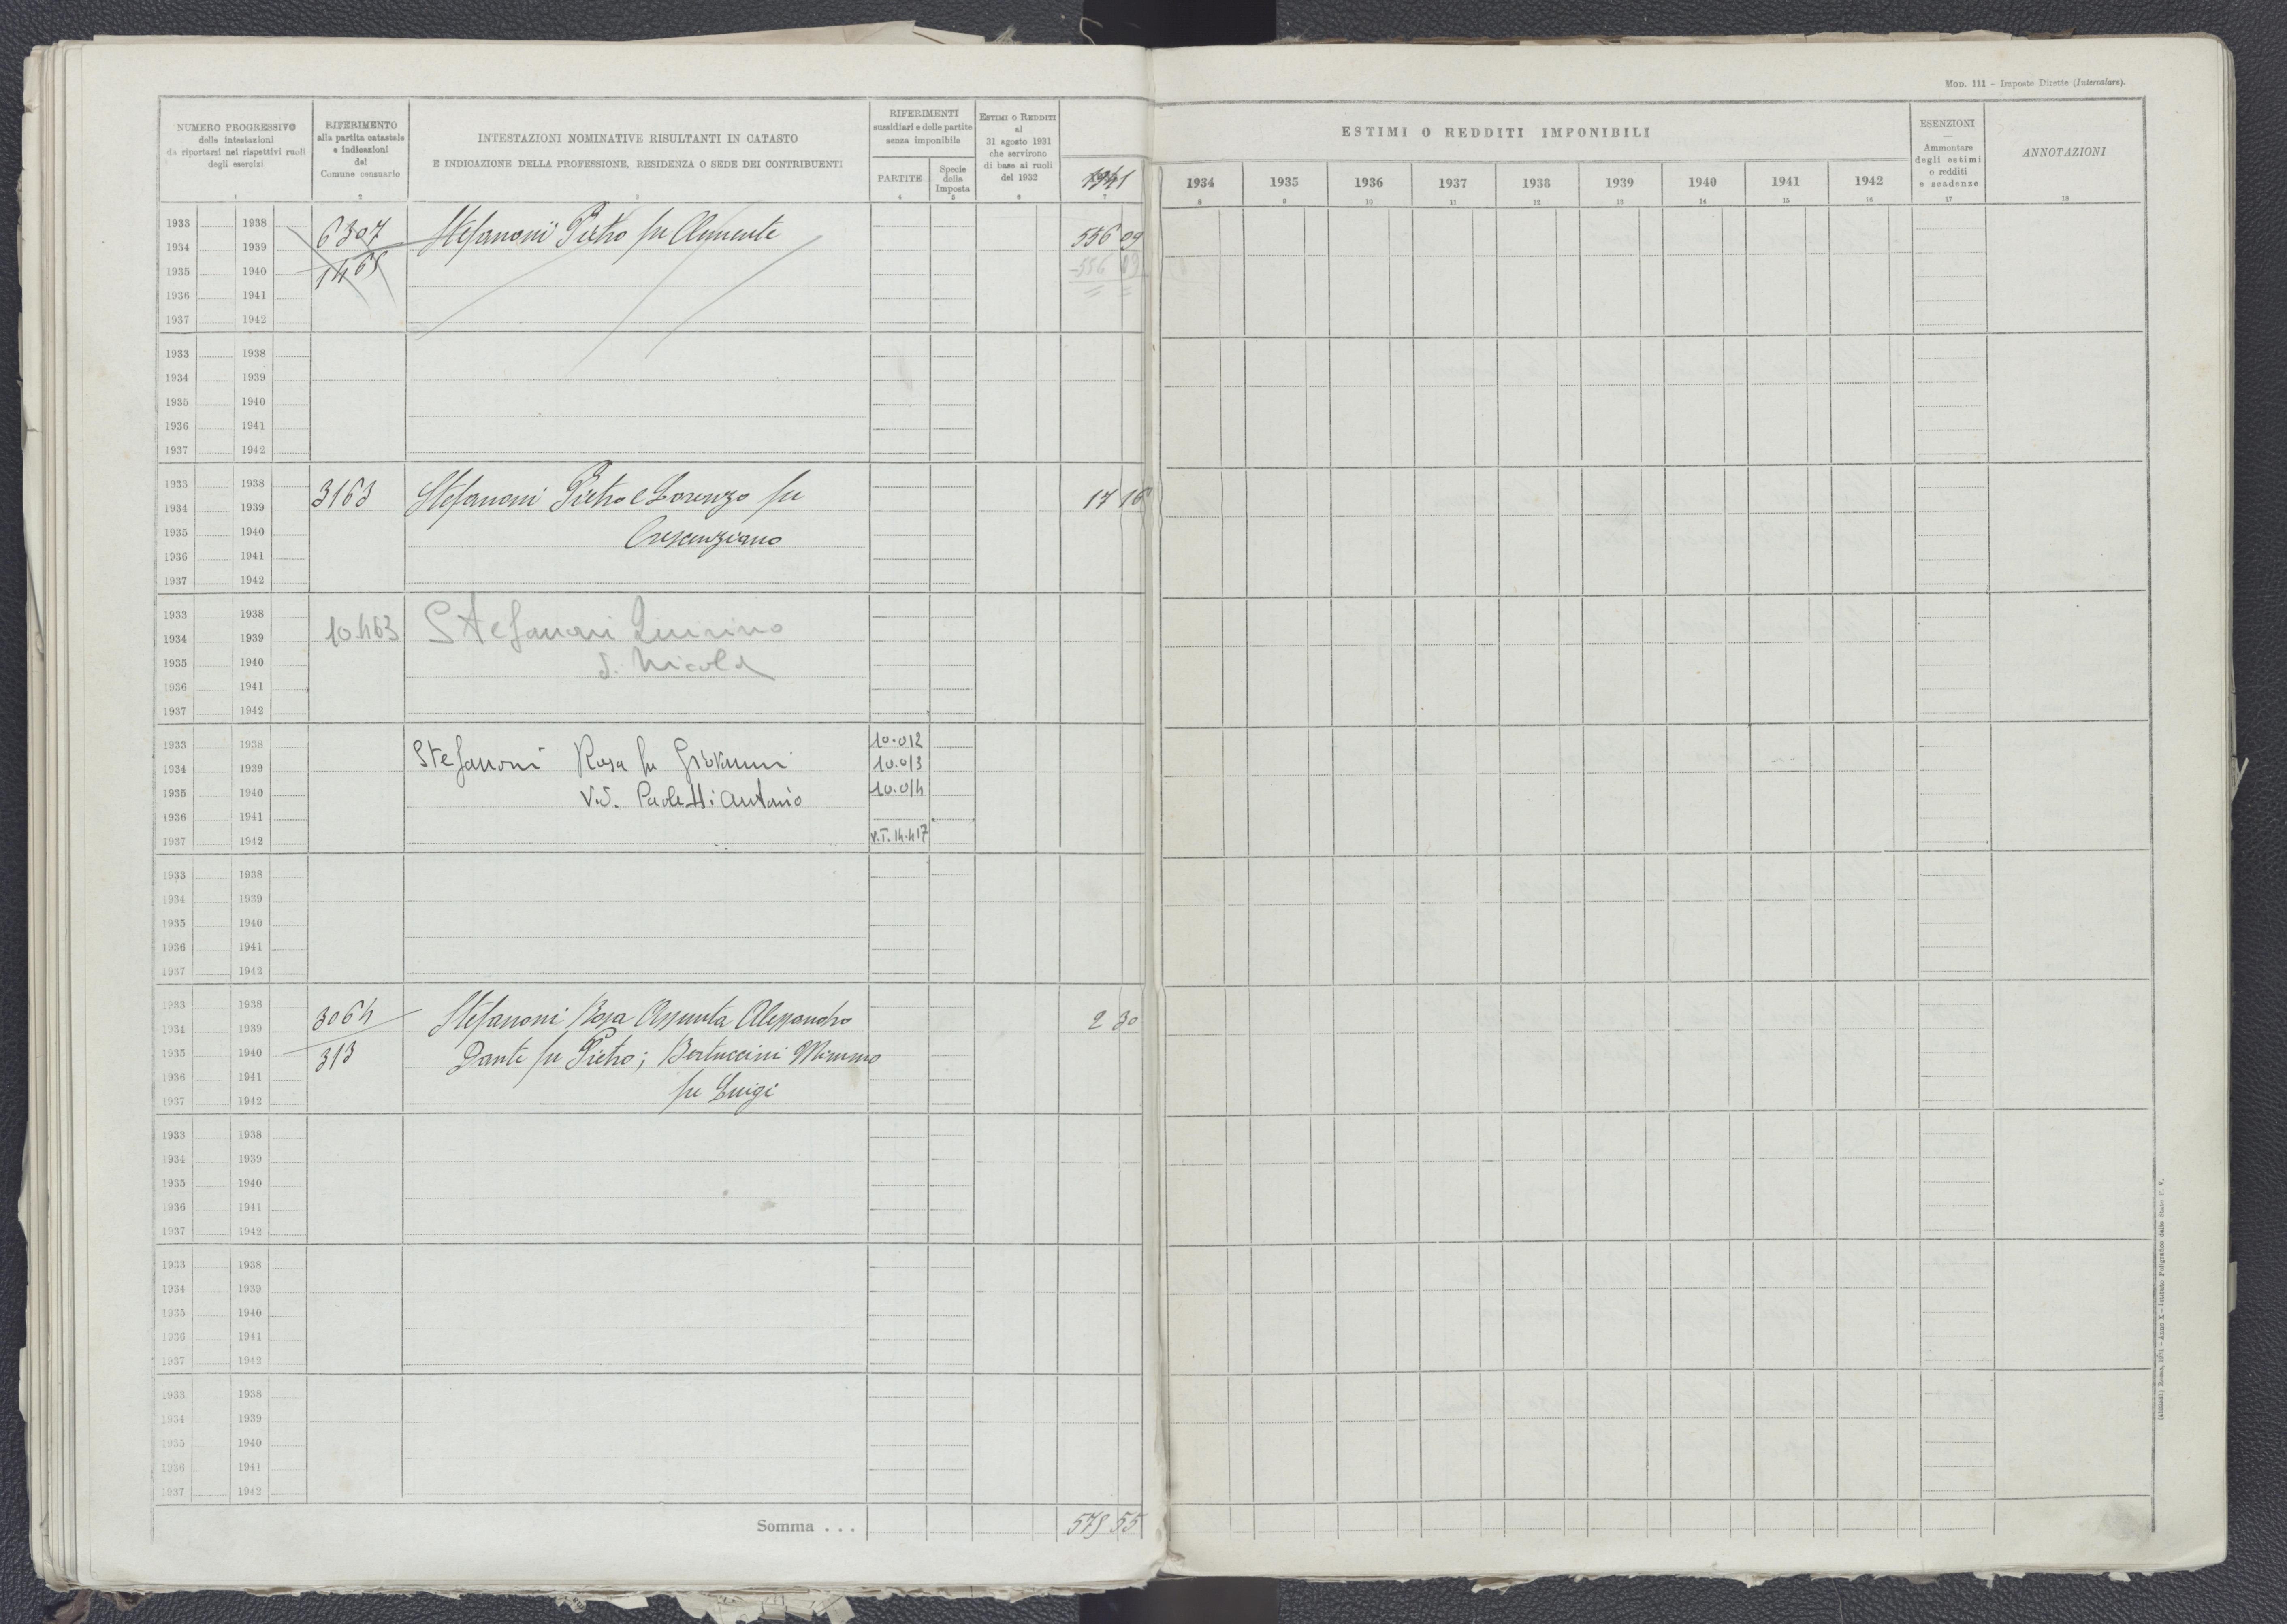 Mod. 111 - Imposte Dirette (Intercalare).
NUMERO PROGRESSIVO
delle intestazioni
da riportarsi nei rispettivi ruoli
degli esercizi
1
RIFERIMENTO
alla partita catastale
e indicazioni
del
Comune censuario
2
INTESTAZIONI NOMINATIVE RISULTANTI IN CATASTO
E INDICAZIONE DELLA PROFESSIONE, RESIDENZA O SEDE DEI CONTRIBUENTI
3
RIFERIMENTI
sussidiari e delle partite
senza imponibile
PARTITE
4
Specie
della
Imposta
5
ESTIMI O REDDITI
al
31 agosto 1931
che servirono
di base ai ruoli
del 1932
6
1941
7
ESTIMI O REDDITI IMPONIBILI
1934 1935 1936 1937 1938 1939 1940 1941 1942
8 9 10 11 12 13 14 15 16
ESENZIONI
—
Ammontare
degli estimi
o redditi
e scadenze
17
ANNOTAZIONI
18
1933 1938
1934 1939 6307 Stefanoni Pietro fu Clemente 556 09
1935 1940 1465 -556 09
1936 1941
1937 1942
1933 1938
1934 1939
1935 1940
1936 1941
1937 1942
1933 1938
1934 1939 3163 Stefanoni Pietro e Lorenzo fu 17 16
1935 1940 Crescenziano
1936 1941
1937 1942
1933 1938
1934 1939 10.463 Stefanoni Quirino
1935 1940 d. Nicola
1936 1941
1937 1942
1933 1938 10.012
1934 1939 Stefanoni Rosa fu Giovanni 10.013
1935 1940 Ved. Paoletti Antonio 10.014
1936 1941
1937 1942 V.T. 14.417
1933 1938
1934 1939
1935 1940
1936 1941
1937 1942
1933 1938
1934 1939 3064 Stefanoni Rosa Assunta Alessandro 2 30
1935 1940 313 Dante fu Pietro; Bertuccini Mimmo
1936 1941
1937 1942 fu Luigi
1933 1938
1934 1939
1935 1940
1936 1941
1937 1942
1933 1938
1934 1939
1935 1940
1936 1941
1937 1942
1933 1938
1934 1939
1935 1940
1936 1941
1937 1942
Somma . . . 575 55